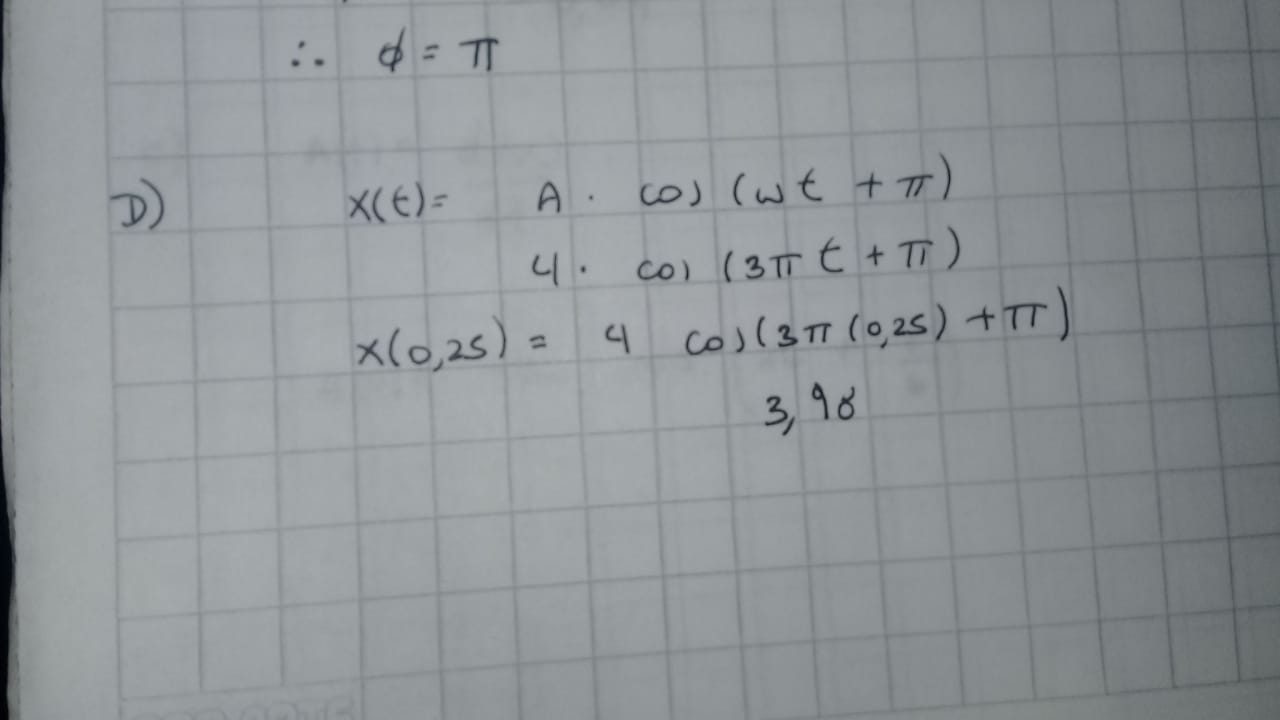 ∴ ϕ = π
D) x(t) = A . cos (wt + π)
4 . cos (3π t + π)
x(0,25) = 4 cos(3π (0,25) + π)
3,98